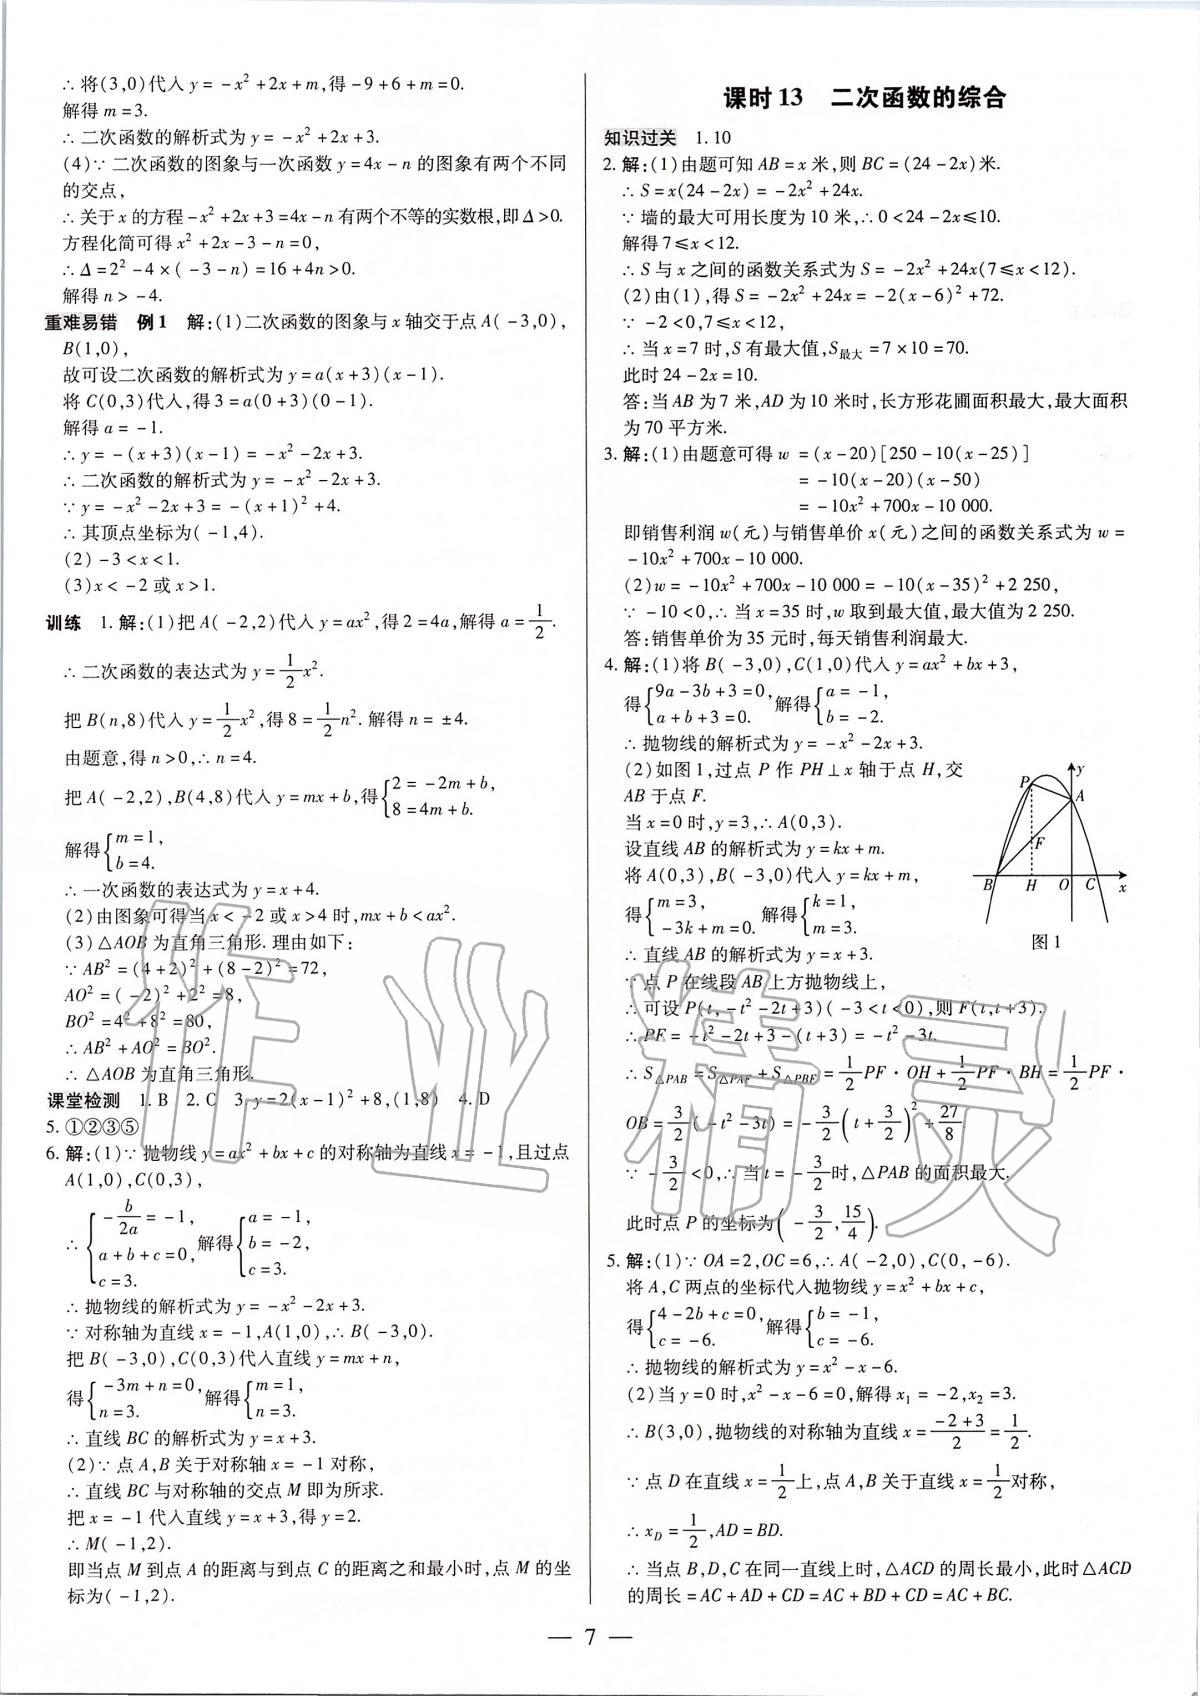 ∴ 将(3,0)代入 y = -x² +2x +m,得 -9 +6 +m =0.
解得 m =3.
∴ 二次函数的解析式为 y = -x² +2x +3.
(4)∵ 二次函数的图象与一次函数 y =4x -n 的图象有两个不同
的交点,
∴ 关于 x 的方程 -x² +2x +3 =4x -n 有两个不等的实数根,即 Δ >0.
方程化简可得 x² +2x -3 -n =0,
∴ Δ =2² -4 ×( -3 -n) =16 +4n >0.
解得 n > -4.
重难易错 例1 解:(1)二次函数的图象与 x 轴交于点 A( -3,0),
B(1,0),
故可设二次函数的解析式为 y =a(x +3)(x -1).
将 C(0,3)代入,得 3 =a(0 +3)(0 -1).
解得 a = -1.
∴ y = -(x +3)(x -1) = -x² -2x +3.
∴ 二次函数的解析式为 y = -x² -2x +3.
∵ y = -x² -2x +3 = -(x +1)² +4.
∴ 其顶点坐标为( -1,4).
(2) -3 <x <1.
(3)x < -2 或 x >1.
训练 1. 解:(1)把 A( -2,2)代入 y =ax²,得 2 =4a,解得 a = 1/2.
∴ 二次函数的表达式为 y = 1/2 x².
把 B(n,8)代入 y = 1/2 x²,得 8 = 1/2 n². 解得 n = ±4.
由题意,得 n >0,∴ n =4.
把 A( -2,2),B(4,8)代入 y =mx +b,得 { 2 = -2m +b, 8 =4m +b.
解得 { m =1, b =4.
∴ 一次函数的表达式为 y =x +4.
(2)由图象可得当 x < -2 或 x >4 时,mx +b <ax².
(3)△AOB 为直角三角形. 理由如下:
∵ AB² =(4 +2)² +(8 -2)² =72,
AO² =( -2)² +2² =8,
BO² =4² +8² =80,
∴ AB² +AO² =BO².
∴ △AOB 为直角三角形.
课堂检测 1. B 2. C 3. y =2(x -1)² +8,(1,8) 4. D
5. ①②③⑤
6. 解:(1)∵ 抛物线 y =ax² +bx +c 的对称轴为直线 x = -1,且过点
A(1,0),C(0,3),
∴ { -b/2a = -1, a +b +c =0, c =3. 解得 { a = -1, b = -2, c =3.
∴ 抛物线的解析式为 y = -x² -2x +3.
∵ 对称轴为直线 x = -1,A(1,0),∴ B( -3,0).
把 B( -3,0),C(0,3)代入直线 y =mx +n,
得 { -3m +n =0, n =3. 解得 { m =1, n =3.
∴ 直线 BC 的解析式为 y =x +3.
(2)∵ 点 A,B 关于对称轴 x = -1 对称,
∴ 直线 BC 与对称轴的交点 M 即为所求.
把 x = -1 代入直线 y =x +3,得 y =2.
∴ M( -1,2).
即当点 M 到点 A 的距离与到点 C 的距离之和最小时,点 M 的坐
标为( -1,2).
课时 13 二次函数的综合
知识过关 1. 10
2. 解:(1)由题可知 AB =x 米,则 BC =(24 -2x)米.
∴ S =x(24 -2x) = -2x² +24x.
∵ 墙的最大可用长度为 10 米,∴ 0 <24 -2x ≤10.
解得 7 ≤x <12.
∴ S 与 x 之间的函数关系式为 S = -2x² +24x(7 ≤x <12).
(2)由(1),得 S = -2x² +24x = -2(x -6)² +72.
∵ -2 <0,7 ≤x <12,
∴ 当 x =7 时,S 有最大值,S最大 =7 ×10 =70.
此时 24 -2x =10.
答:当 AB 为 7 米,AD 为 10 米时,长方形花圃面积最大,最大面积
为 70 平方米.
3. 解:(1)由题意可得 w =(x -20)[250 -10(x -25)]
= -10(x -20)(x -50)
= -10x² +700x -10 000.
即销售利润 w(元)与销售单价 x(元)之间的函数关系式为 w =
-10x² +700x -10 000.
(2)w = -10x² +700x -10 000 = -10(x -35)² +2 250,
∵ -10 <0,∴ 当 x =35 时,w 取到最大值,最大值为 2 250.
答:销售单价为 35 元时,每天销售利润最大.
4. 解:(1)将 B( -3,0),C(1,0)代入 y =ax² +bx +3,
得 { 9a -3b +3 =0, a +b +3 =0. 解得 { a = -1, b = -2.
∴ 抛物线的解析式为 y = -x² -2x +3.
(2)如图 1,过点 P 作 PH⊥x 轴于点 H,交
AB 于点 F.
当 x =0 时,y =3,∴ A(0,3).
设直线 AB 的解析式为 y =kx +m.
将 A(0,3),B( -3,0)代入 y =kx +m,
得 { m =3, -3k +m =0. 解得 { k =1, m =3.
∴ 直线 AB 的解析式为 y =x +3.
∵ 点 P 在线段 AB 上方抛物线上,
∴ 可设 P(t, -t² -2t +3)( -3 <t <0),则 F(t,t +3).
∴ PF = -t² -2t +3 -(t +3) = -t² -3t.
∴ S△PAB =S△PAF +S△PBF = 1/2 PF · OH + 1/2 PF · BH = 1/2 PF ·
OB = 3/2( -t² -3t) = -3/2(t + 3/2)² + 27/8
∵ -3/2 <0,∴ 当 t = -3/2 时,△PAB 的面积最大.
此时点 P 的坐标为( -3/2, 15/4).
y
P
A
F
B H O C x
图 1
5. 解:(1)∵ OA =2,OC =6,∴ A( -2,0),C(0, -6).
将 A,C 两点的坐标代入抛物线 y =x² +bx +c,
得 { 4 -2b +c =0, c = -6. 解得 { b = -1, c = -6.
∴ 抛物线的解析式为 y =x² -x -6.
(2)当 y =0 时,x² -x -6 =0,解得 x₁ = -2,x₂ =3.
∴ B(3,0),抛物线的对称轴为直线 x = (-2 +3)/2 = 1/2.
∵ 点 D 在直线 x = 1/2 上,点 A,B 关于直线 x = 1/2 对称,
∴ x_D = 1/2,AD =BD.
∴ 当点 B,D,C 在同一直线上时,△ACD 的周长最小,此时△ACD
的周长 =AC +AD +CD =AC +BD +CD =AC +BC.
作业精灵
— 7 —